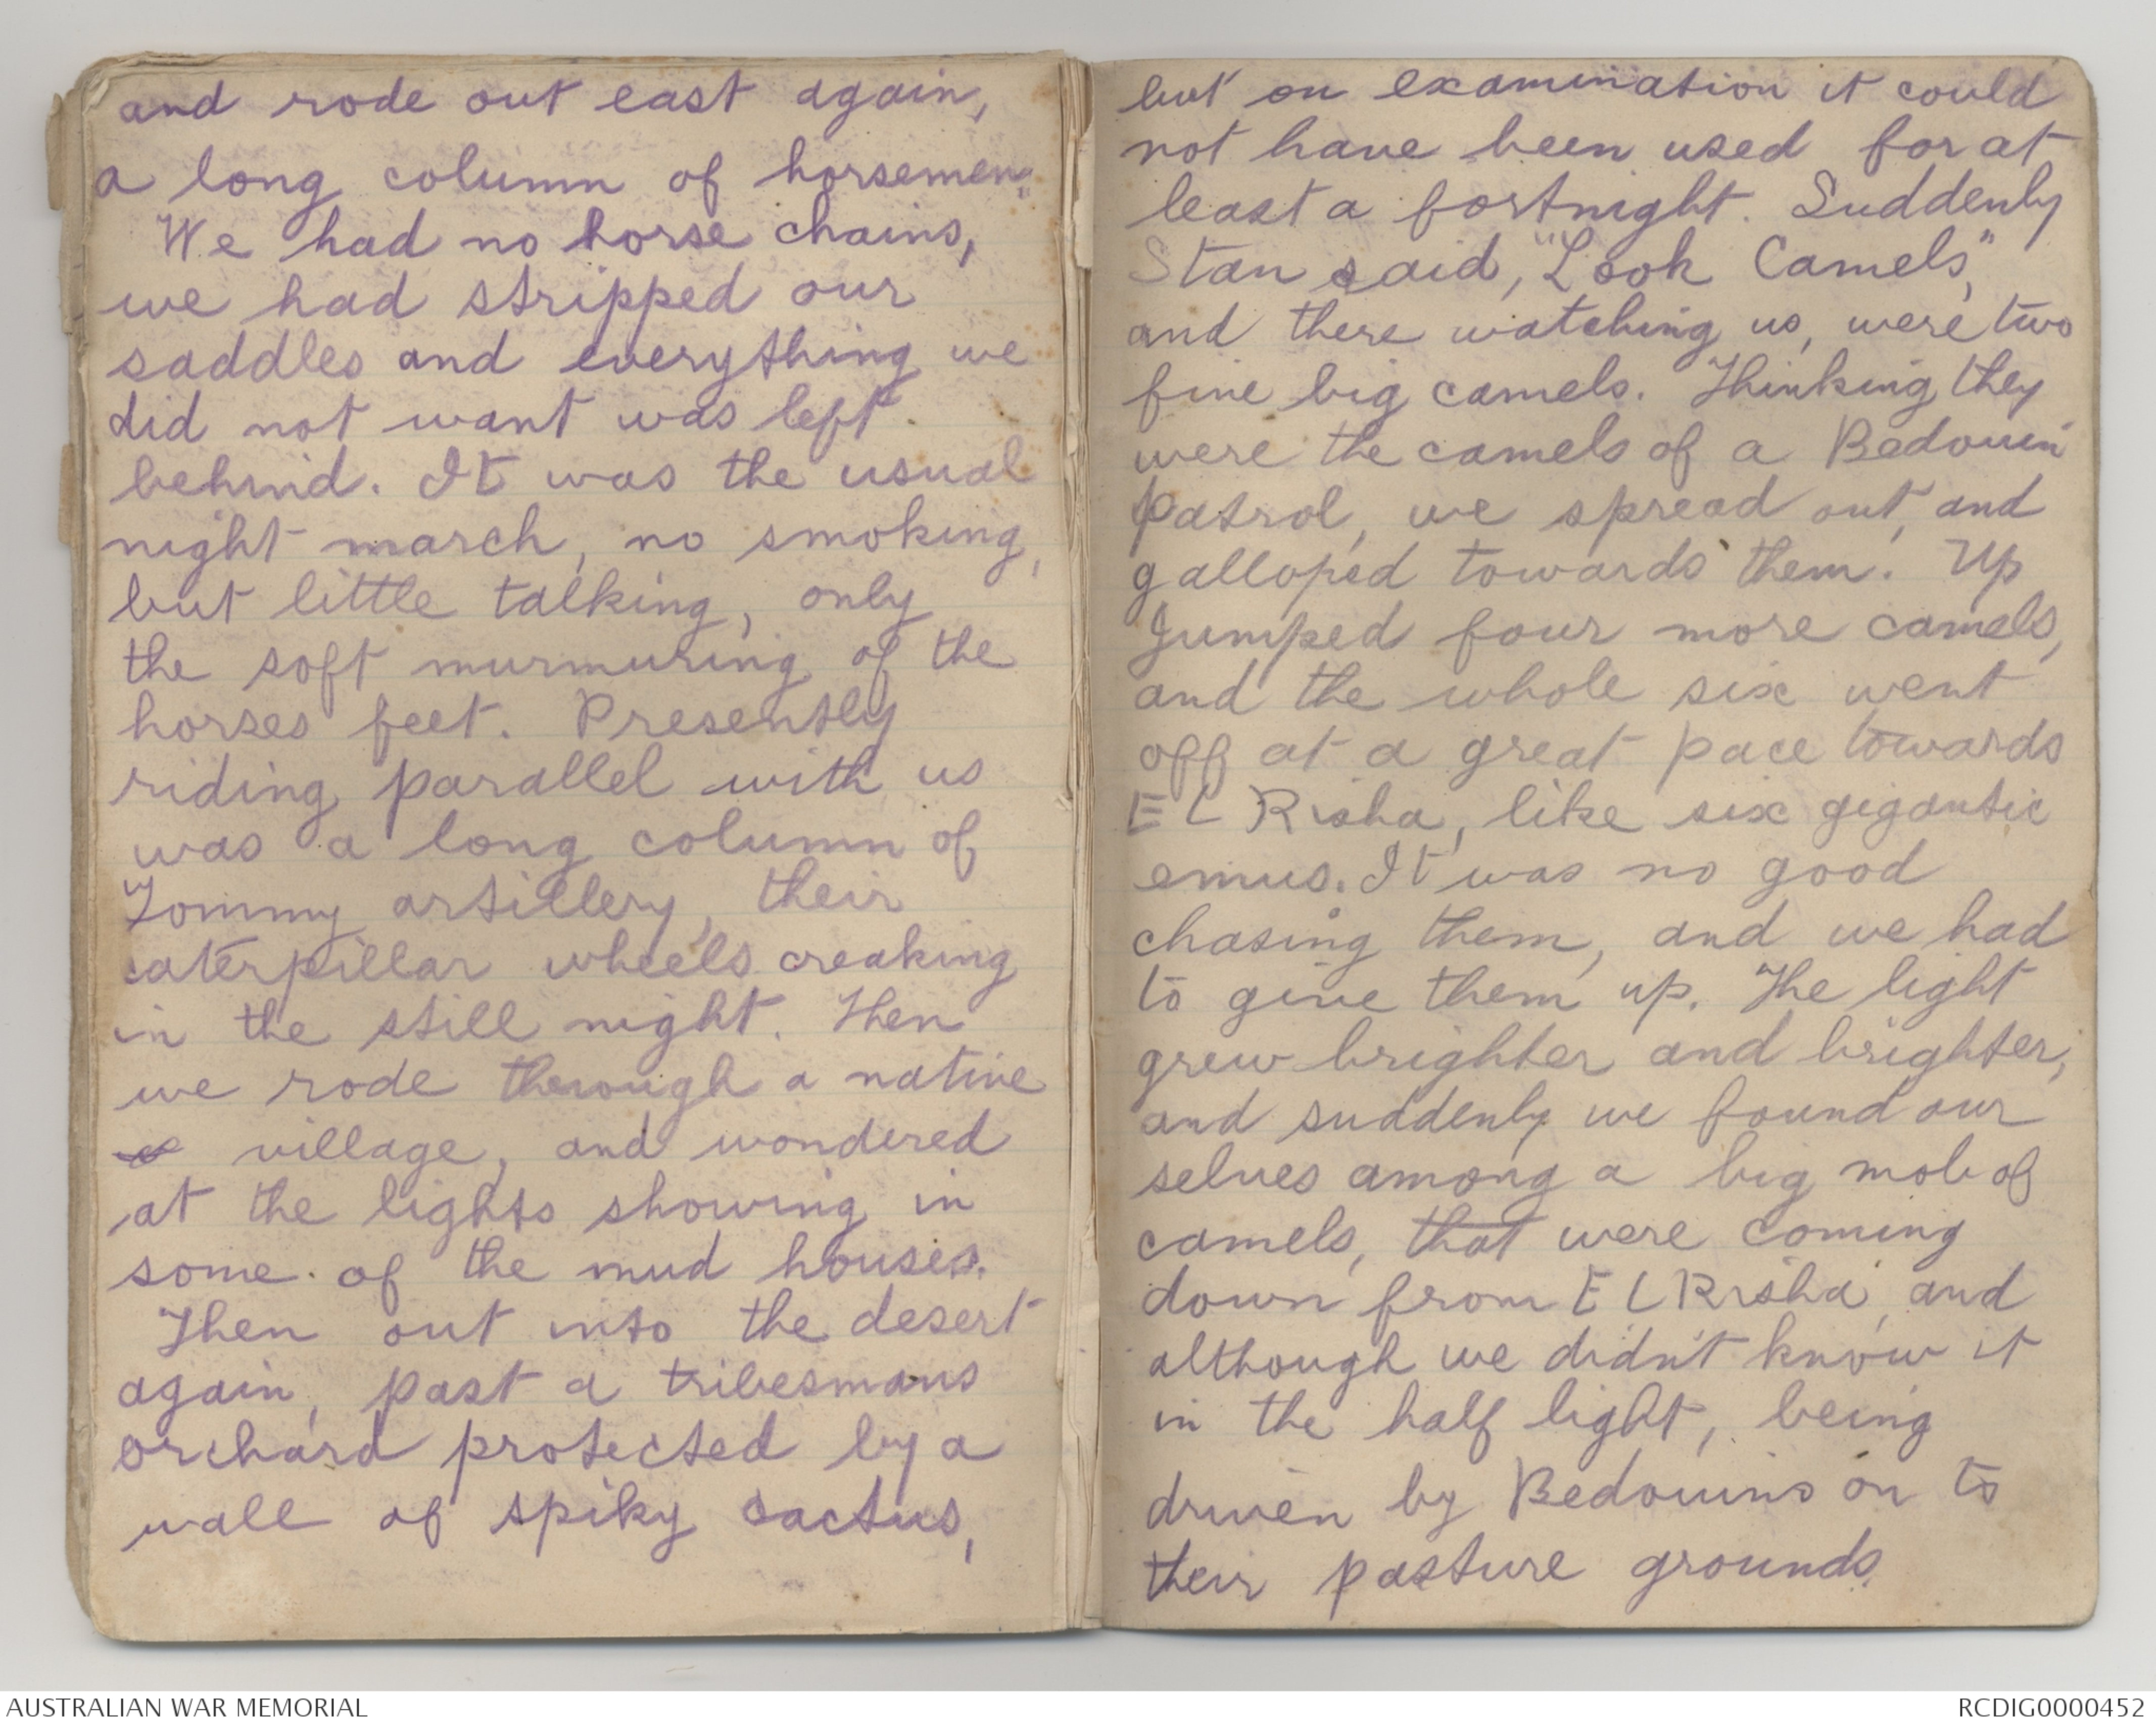 and rode out east again,
a long column of horsemen.
We had no horse chains,
we had stripped our
saddles and everything we
did not want was left
behind. It was the usual
night march, no smoking,
but little talking, only
the soft murmuring of the
horses feet. Presently
riding parallel with us
was a long column of
Tommy artillery, their
caterpillar wheels creaking
in the still night. Then
we rode through a native
village, and wondered
at the lights showing in
some of the mud houses.
Then out into the desert
again, past a tribesmans
orchard protected by a
wall of spiky cactus,
but on examination it could
not have been used for at
least a fortnight. Suddenly
Stan said, "Look Camels",
and there watching us, were two
fine big camels. Thinking they
were the camels of a Bedouin
patrol, we spread out, and
galloped towards them. Up
jumped four more camels,
and the whole six went
off at a great pace towards
EL Risha, like six gigantic
emus. It was no good
chasing them, and we had
to give them up. The light
grew brighter and brighter,
and suddenly we found our
selves among a big mob of
camels, that were coming
down from EL Risha, and
although we didn't know it
in the half light, being
driven by Bedouins on to
their pasture grounds.
AUSTRALIAN WAR MEMORIAL
RCDIG0000452